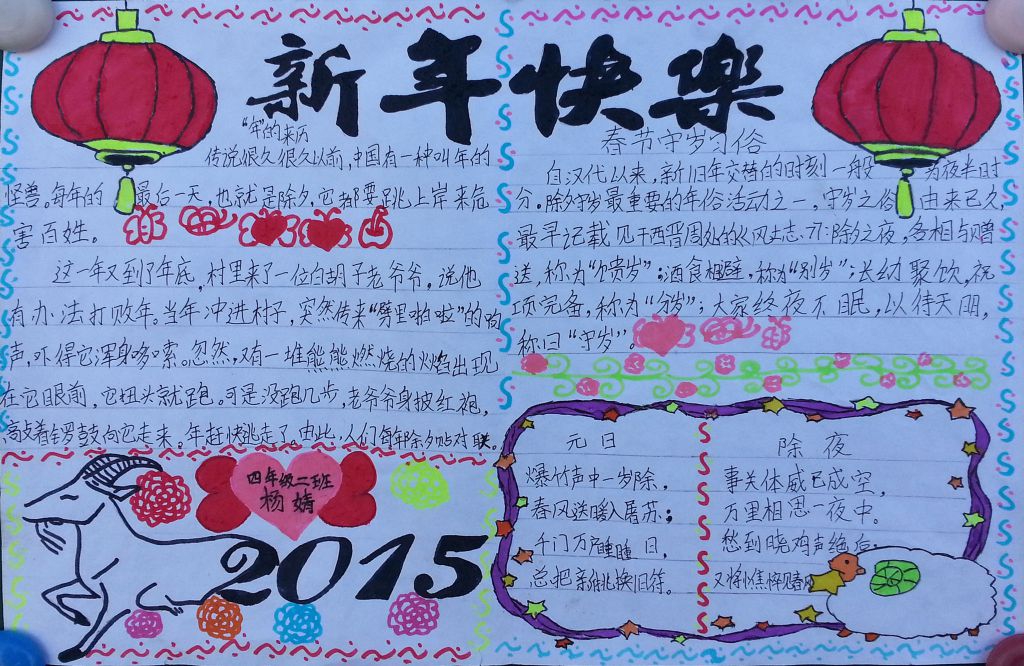 新年快樂
“年”的来历
传说很久很久以前,中国有一种叫年的
怪兽。每年的最后一天,也就是除夕,它都要跳上岸来危
害百姓。
这一年又到了年底,村里来了一位白胡子老爷爷。说他
有办法打败年。当年冲进村子,突然传来“劈里啪啦”的响
声,吓得它浑身哆嗦。忽然,又有一堆熊熊燃烧的火焰出现
在它眼前,它扭头就跑。可是没跑几步,老爷爷身披红袍,
敲着锣鼓向它走来。年赶快逃走了。由此,人们每年除夕贴对联。
四年级二班
杨婧
2015
春节守岁习俗
自汉代以来,新旧年交替的时刻一般为夜半时
分。除夕守岁最重要的年俗活动之一,守岁之俗由来已久
最早记载见于西晋周处的《风土志》:除夕之夜,各相与赠
送,称为“馈岁”;酒食相邀,称为“别岁”;长幼聚饮,祝
颂完备,称为“分岁”;大家终夜不眠,以待天明,
称曰“守岁”。
元日
爆竹声中一岁除,
春风送暖入屠苏;
千门万户瞳瞳日,
总把新桃换旧符。
除夜
事关休戚已成空,
万里相思一夜中。
愁到晓鸡声绝后,
又将憔悴见春